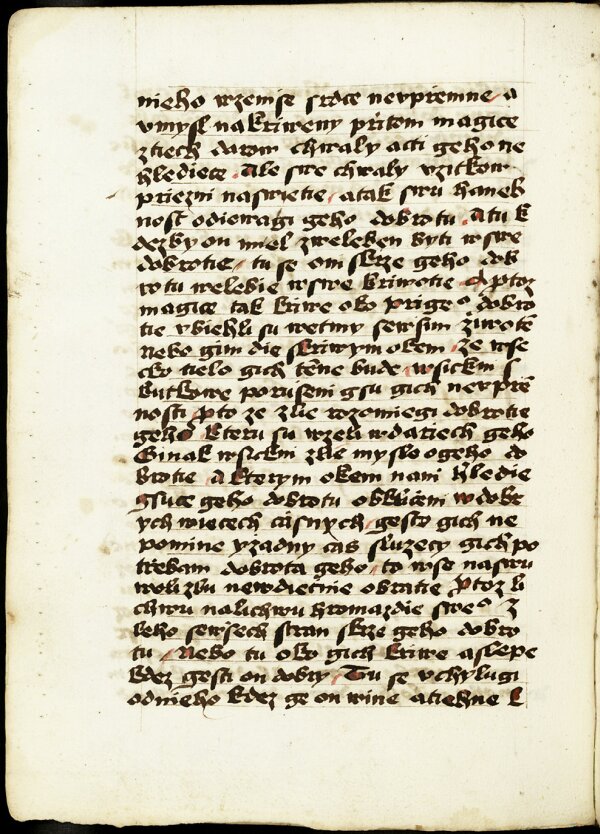 nieho wzemse srdce nevpriemne a
vmysl nakriweny přitom magice
ztiech darow chwaly acti geho ne
hlediece Ale swe chwaly vzitkow
priezni naswietie atak swu haneb
nost odiewagi geho dobrotu Atu k
dezby on miel zweleben byti w swe
dobrotie tu se oni skrze geho dob
rotu welebie wswe kriwotie A ꝓtoz
magice tak kriwe oko prige° dobro
tie vbiehli su wetmy sewsim żiwotē
nebo gim die skriwym okem ze wse
cko tielo gich tēne bude wsickni s
kutkowe poruseni gsu gich nevpřie
nosti ꝓto ze zlie rozomiegi dobrotie
geho kteru su wzeli wdariech geho
Ginak wsickni zlie myslo ogeho do
brotie Akterym okem nani hledie
gsuce geho dobrotu obkliceni wdobr
ych wiecech casnych gesto gich ne
pomine yzadny cas sluzecy gich po
trebam dobrota geho to wse naswu
woli zlu newdiecnie obratie ꝓtoz li
chwu nalichwu hromazdie swe° z
keho sewsech stran skrze geho dobro
tu Nebo tu oko gich kriwe aslepe
kdez gest on dobry Tu se vchylugi
odnieho kdez ge on wine atiehne k